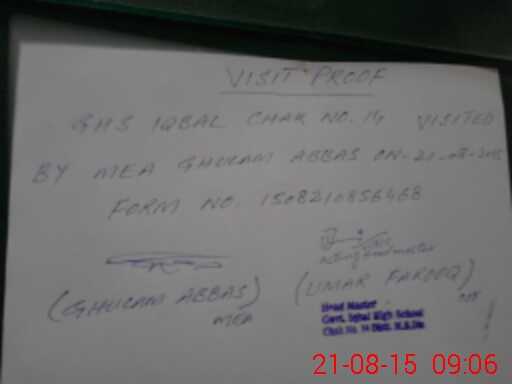 VISIT PROOF
GHS IQBAL CHAK NO. 14 VISITED
BY MEA GHULAM ABBAS ON-21-08-2015
FORM NO. 1508210856468
Acting Headmaster
(GHULAM ABBAS) (UMAR FAROOQ)
MEA
Head Master
Govt. Iqbal High School
Chak No. 14 Distt. M.B.Din
21-08-15 09:06